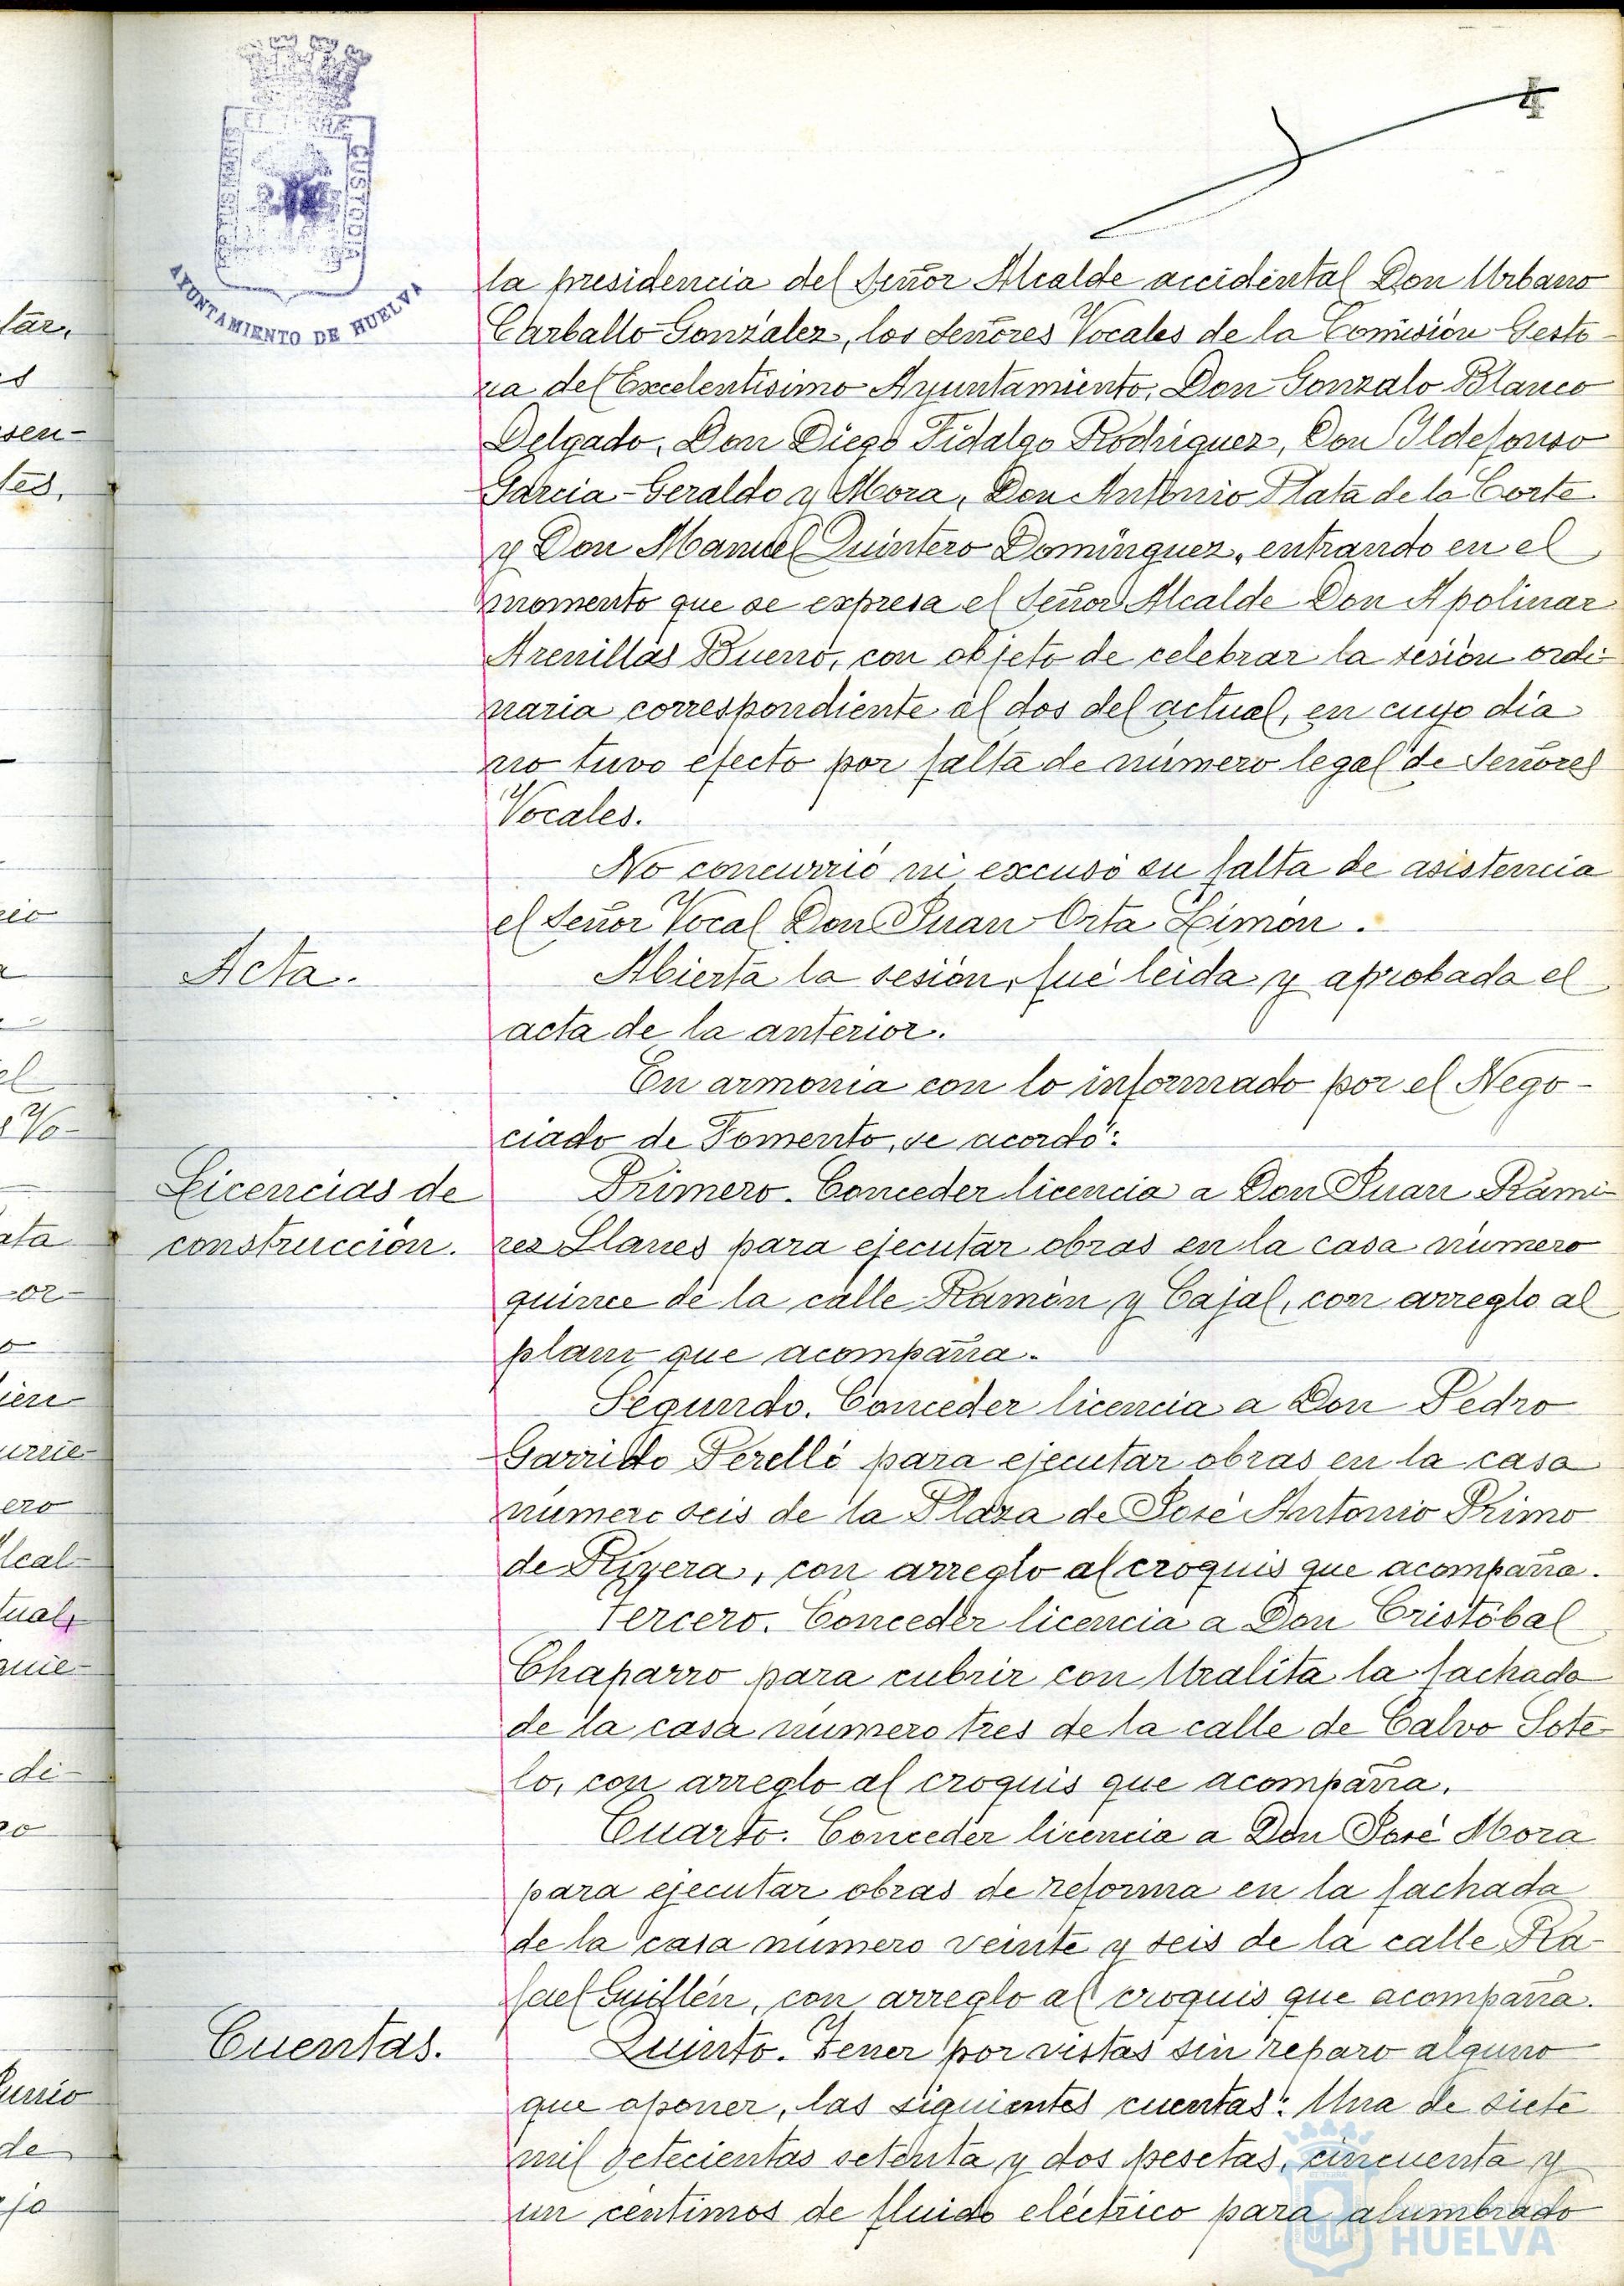 4
PORTUS MARIS
ET TERRAE
CUSTODIA
AYUNTAMIENTO DE HUELVA
la presidencia del Señor Alcalde accidental Don Urbano
Carballo González, los Señores Vocales de la Comisión Gesto-
ra del Excelentísimo Ayuntamiento, Don Gonzalo Blanco
Delgado, Don Diego Fidalgo Rodriguez, Don Ildefonso
Garcia-Geraldo y Mora, Don Antonio Plata de la Corte
y Don Manuel Quintero Dominguez, entrando en el
momento que se expresa el Señor Alcalde Don Apolinar
Arenillas Bueno, con objeto de celebrar la sesión ordi-
naria correspondiente al dos del actual, en cuyo dia
no tuvo efecto por falta de número legal de Señores
Vocales.
No concurrió ni excusó su falta de asistencia
el Señor Vocal Don Juan Orta Limón.
Acta.
Abierta la sesión, fué leida y aprobada el
acta de la anterior.
En armonia con lo informado por el Nego-
ciado de Fomento, se acordó:
Licencias de
construcción.
Primero. Conceder licencia a Don Juan Rami-
rez Llanes para ejecutar obras en la casa número
quince de la calle Ramón y Cajal, con arreglo al
plano que acompaña.
Segundo. Conceder licencia a Don Pedro
Garrido Perelló para ejecutar obras en la casa
número seis de la Plaza de José Antonio Primo
de Rivera, con arreglo al croquis que acompaña.
Tercero. Conceder licencia a Don Cristóbal
Chaparro para cubrir con Uralita la fachada
de la casa número tres de la calle de Calvo Sote-
lo, con arreglo al croquis que acompaña.
Cuarto. Conceder licencia a Don José Mora
para ejecutar obras de reforma en la fachada
de la casa número veinte y seis de la calle Ra-
fael Guillén, con arreglo al croquis que acompaña.
Cuentas.
Quinto. Tener por vistas sin reparo alguno
que oponer, las siguientes cuentas: Una de siete
mil setecientas setenta y dos pesetas, cincuenta y
un céntimos de fluido eléctrico para alumbrado
HUELVA